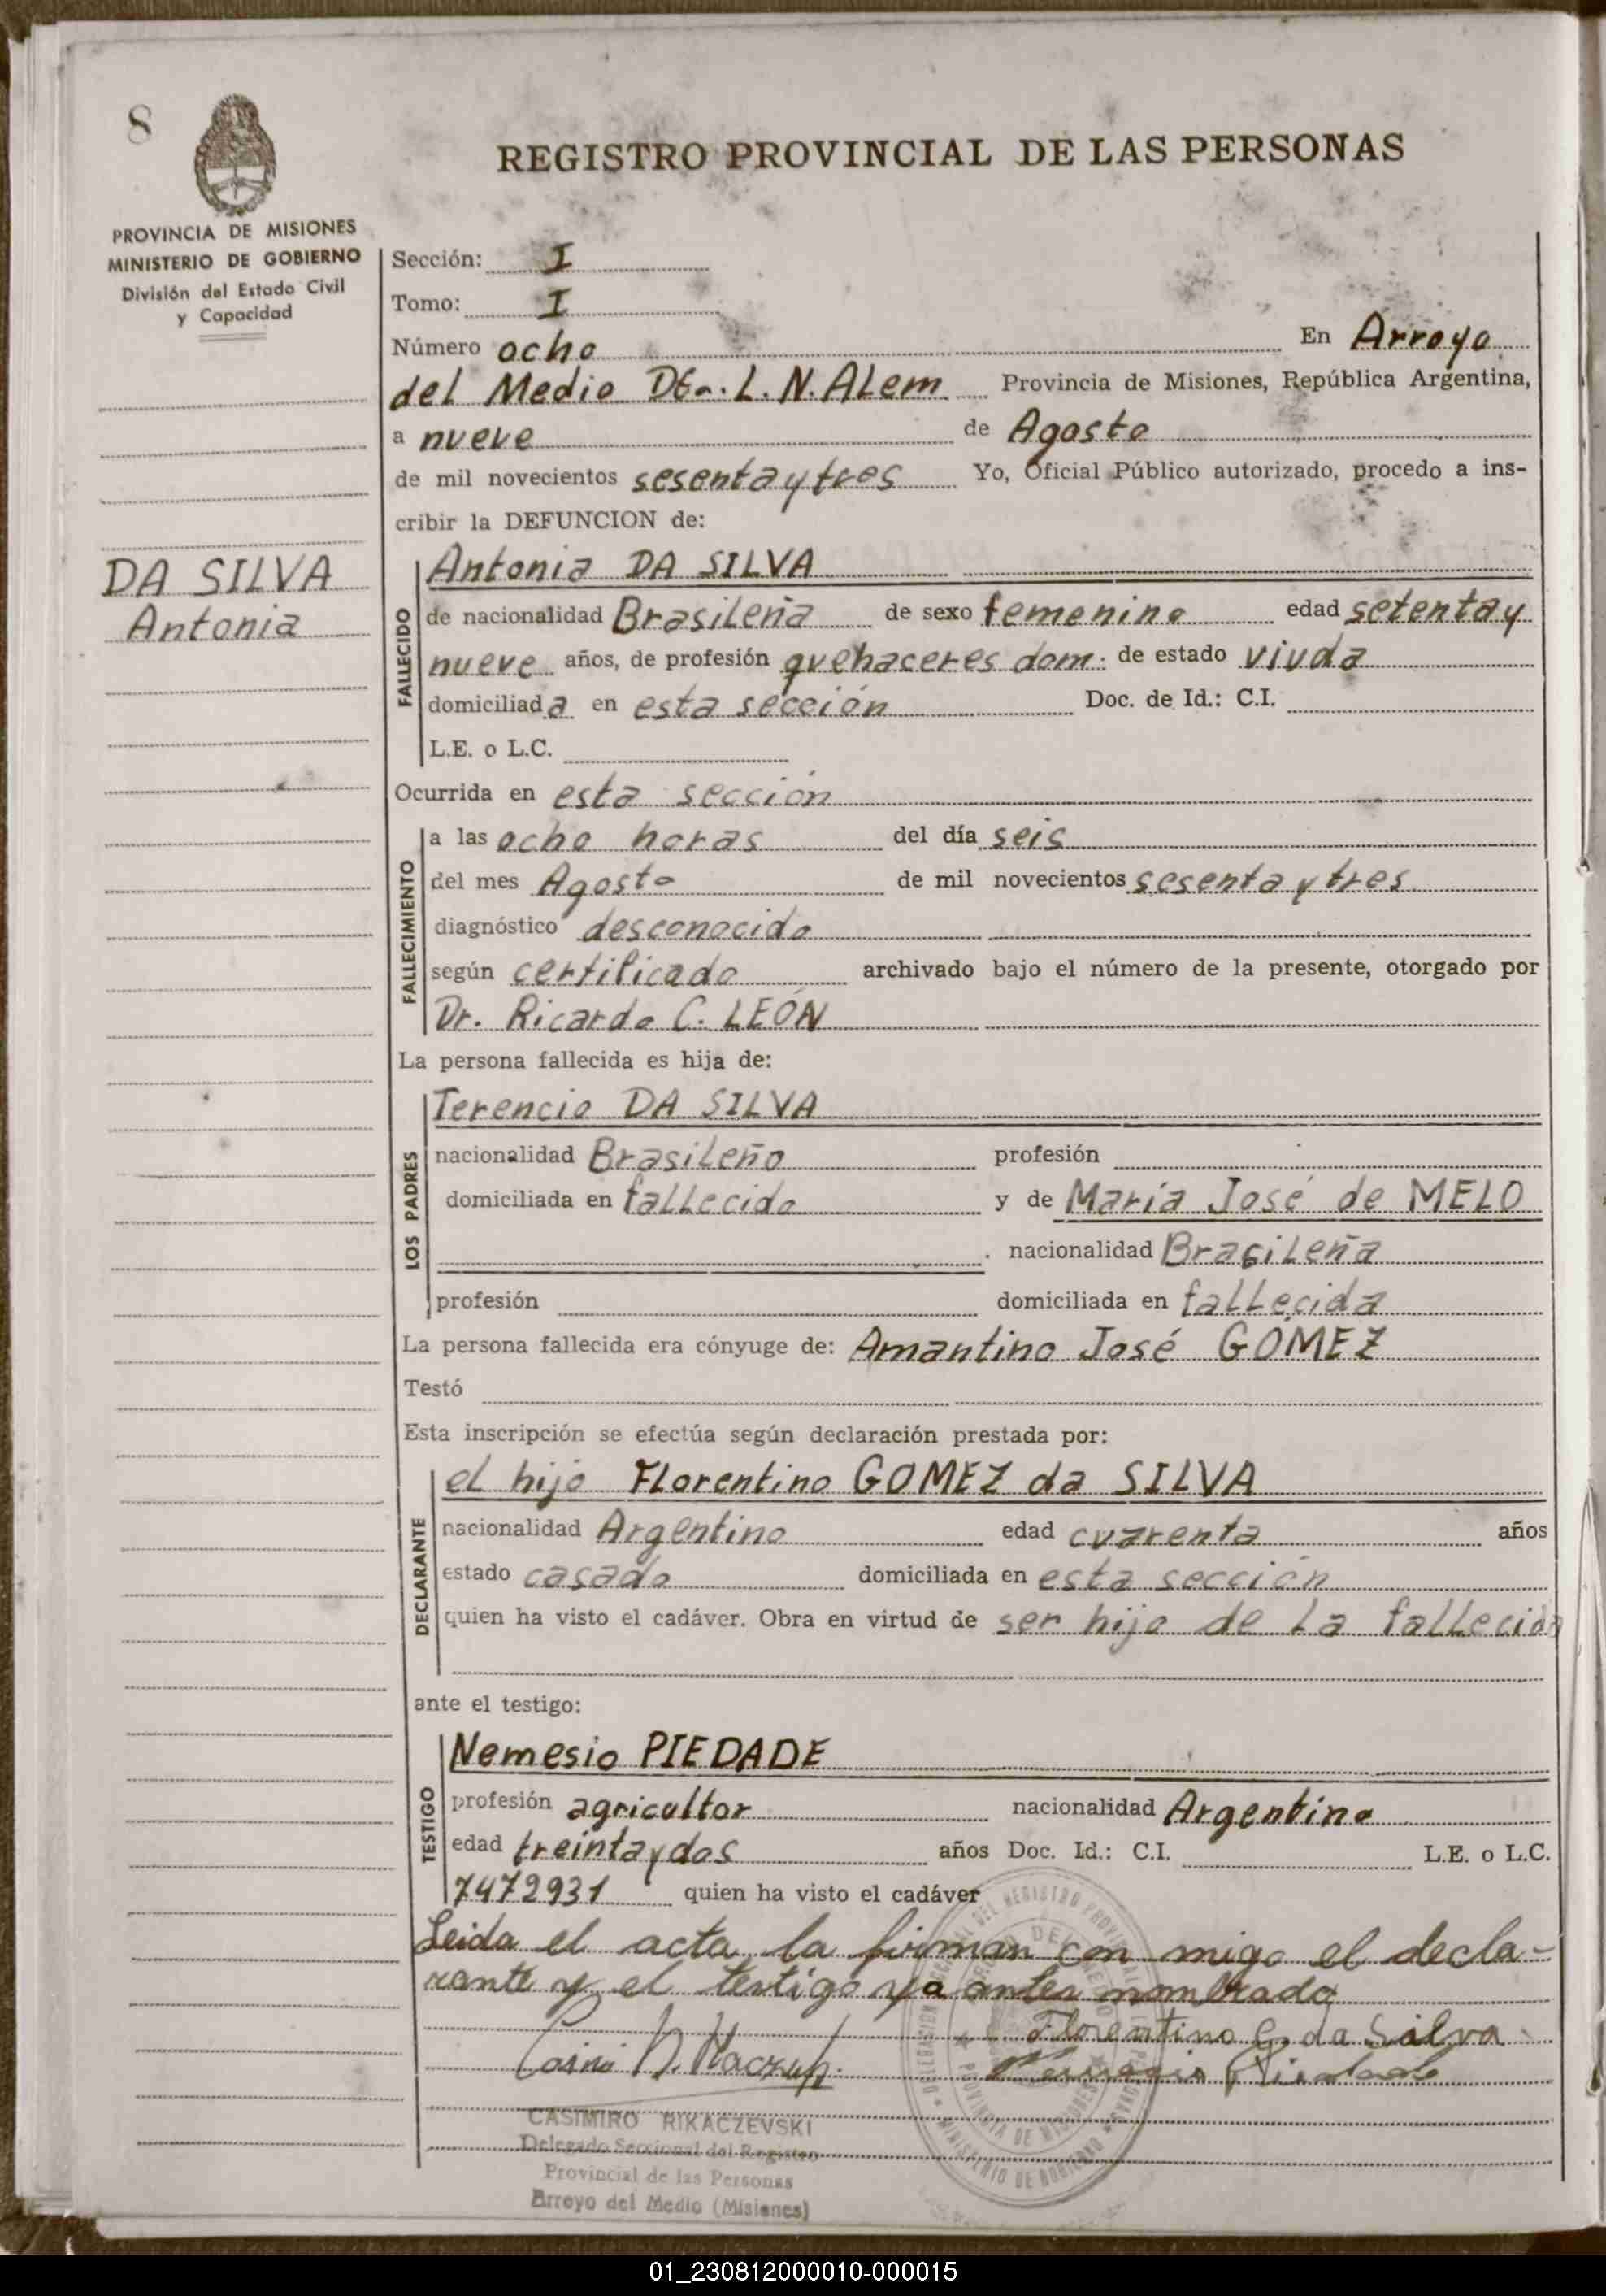 8
REGISTRO PROVINCIAL DE LAS PERSONAS
PROVINCIA DE MISIONES
MINISTERIO DE GOBIERNO
División del Estado Civil
y Capacidad
DA SILVA
Antonia
Sección: I
Tomo: I
Número ocho En Arroyo
del Medio Dto. L. N. ALem Provincia de Misiones, República Argentina,
a nueve de Agosto
de mil novecientos sesenta y tres Yo, Oficial Público autorizado, procedo a ins-
cribir la DEFUNCION de:
FALLECIDO
Antonia DA SILVA
de nacionalidad Brasileña de sexo femenino edad setenta y
nueve años, de profesión quehaceres dom. de estado viuda
domiciliada en esta sección Doc. de Id.: C.I.
L.E. o L.C.
Ocurrida en esta sección
FALLECIMIENTO
a las ocho horas del día seis
del mes Agosto de mil novecientos sesenta y tres
diagnóstico desconocido
según certificado archivado bajo el número de la presente, otorgado por
Dr. Ricardo C. LEÓN
La persona fallecida es hija de:
LOS PADRES
Terencio DA SILVA
nacionalidad Brasileño profesión
domiciliada en fallecido y de María José de MELO
nacionalidad Brasileña
profesión domiciliada en fallecida
La persona fallecida era cónyuge de: Amantino José GÓMEZ
Testó
Esta inscripción se efectúa según declaración prestada por:
DECLARANTE
el hijo Florentino GOMEZ da SILVA
nacionalidad Argentino edad cuarenta años
estado casado domiciliada en esta sección
quien ha visto el cadáver. Obra en virtud de ser hijo de la fallecida
ante el testigo:
TESTIGO
Nemesio PIEDADE
profesión agricultor nacionalidad Argentino
edad treinta y dos años Doc. Id.: C.I. L.E. o L.C.
7472931 quien ha visto el cadáver
Leida el acta, la firman con migo el decla-
rante y el testigo ya antes nombrado
Florentino G. da Silva
Nemesio Piedade
CASIMIRO RIKACZEVSKI
Delegado Seccional del Registro
Provincial de las Personas
Arroyo del Medio (Misiones)
01_230812000010-000015